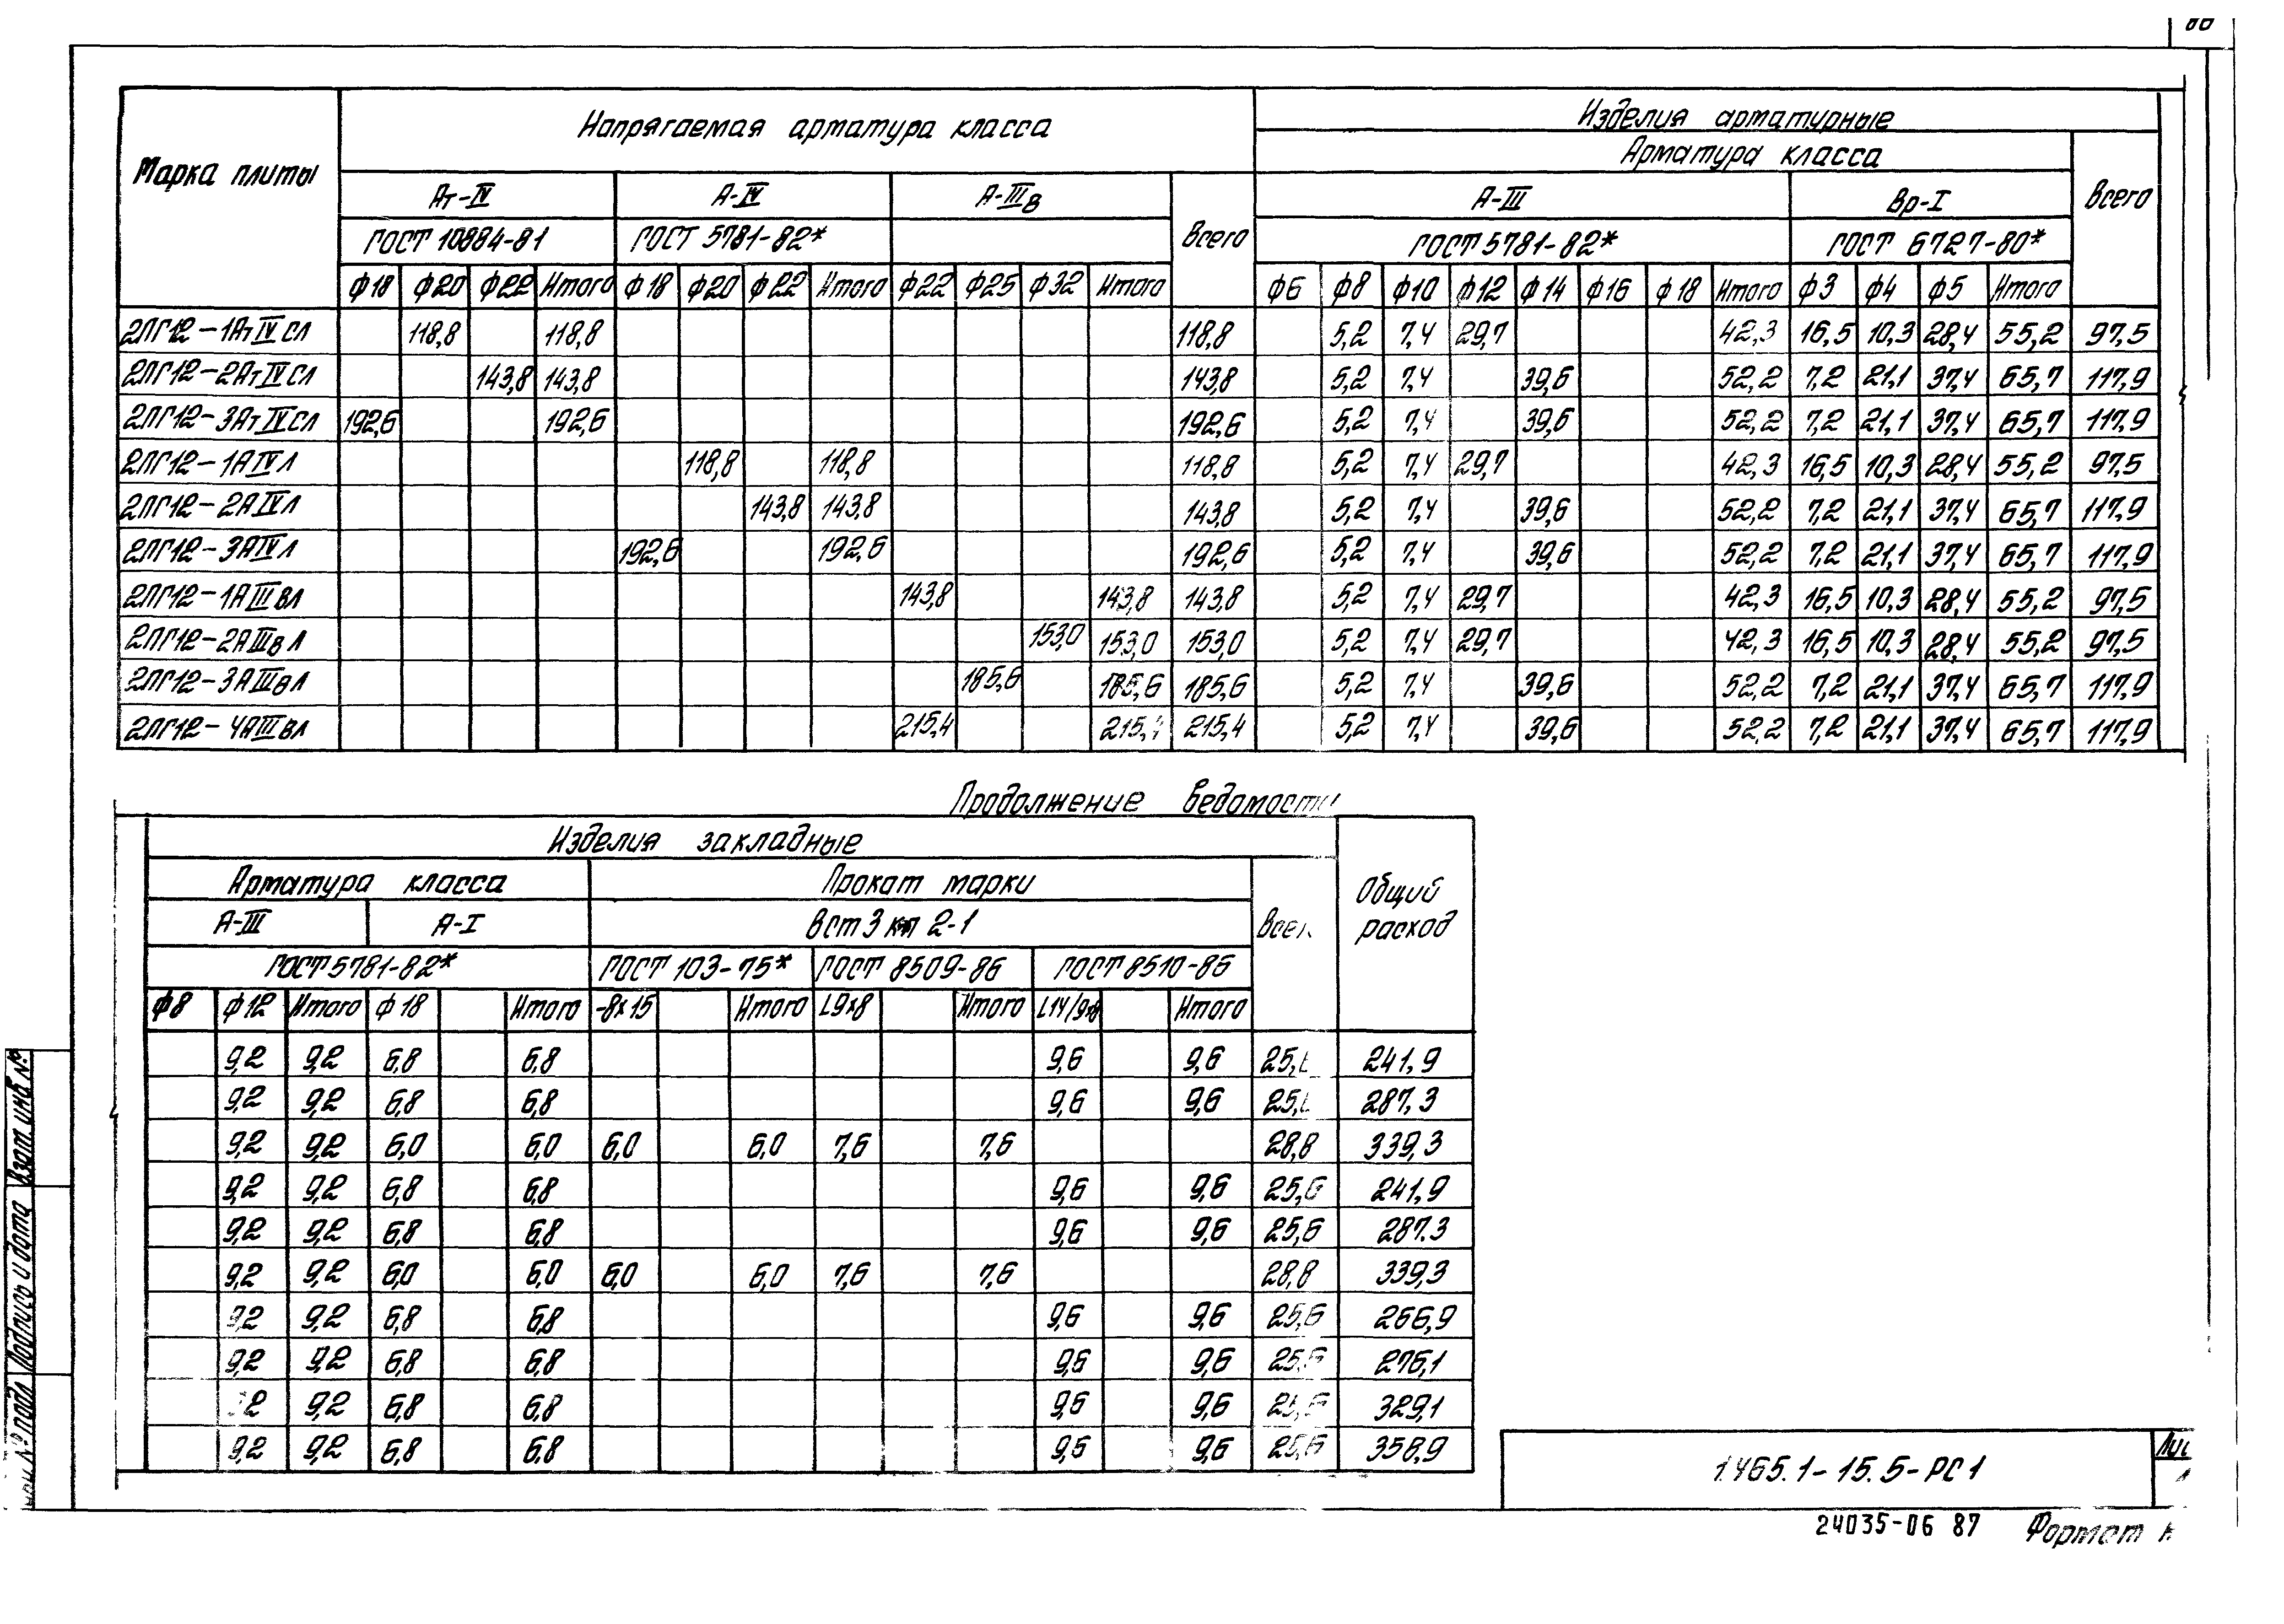 86
Напрягаемая арматура класса
Изделия арматурные
Арматура класса
Марка плиты
Ат-IV А-IV А-IIIв Всего А-III Вр-I Всего
ГОСТ 10884-81 ГОСТ 5781-82* ГОСТ 5781-82* ГОСТ 6727-80*
Ф18 Ф20 Ф22 Итого Ф18 Ф20 Ф22 Итого Ф22 Ф25 Ф32 Итого Ф6 Ф8 Ф10 Ф12 Ф14 Ф16 Ф18 Итого Ф3 Ф4 Ф5 Итого
2ПГ12-1АтIVСЛ 118,8 118,8 118,8 5,2 7,4 29,7 42,3 16,5 10,3 28,4 55,2 97,5
2ПГ12-2АтIVСЛ 143,8 143,8 143,8 5,2 7,4 39,6 52,2 7,2 21,1 37,4 65,7 117,9
2ПГ12-3АтIVСЛ 192,6 192,6 192,6 5,2 7,4 39,6 52,2 7,2 21,1 37,4 65,7 117,9
2ПГ12-1АIVЛ 118,8 118,8 118,8 5,2 7,4 29,7 42,3 16,5 10,3 28,4 55,2 97,5
2ПГ12-2АIVЛ 143,8 143,8 143,8 5,2 7,4 39,6 52,2 7,2 21,1 37,4 65,7 117,9
2ПГ12-3АIVЛ 192,6 192,6 192,6 5,2 7,4 39,6 52,2 7,2 21,1 37,4 65,7 117,9
2ПГ12-1АIIIвЛ 143,8 143,8 143,8 5,2 7,4 29,7 42,3 16,5 10,3 28,4 55,2 97,5
2ПГ12-2АIIIвЛ 153,0 153,0 153,0 5,2 7,4 29,7 42,3 16,5 10,3 28,4 55,2 97,5
2ПГ12-3АIIIвЛ 185,6 185,6 185,6 5,2 7,4 39,6 52,2 7,2 21,1 37,4 65,7 117,9
2ПГ12-4АIIIвЛ 215,4 215,4 215,4 5,2 7,4 39,6 52,2 7,2 21,1 37,4 65,7 117,9
Продолжение ведомости
Изделия закладные
Арматура класса Прокат марки Общий расход
А-III А-I Вст3кп2-1 Всего
ГОСТ 5781-82* ГОСТ 103-75* ГОСТ 8509-86 ГОСТ 8510-86
Ф8 Ф12 Итого Ф18 Итого -8х15 Итого L9х8 Итого L14/9х8 Итого
9,2 9,2 6,8 6,8 9,6 9,6 25,6 241,9
9,2 9,2 6,8 6,8 9,6 9,6 25,6 287,3
9,2 9,2 6,0 6,0 6,0 6,0 7,6 7,6 28,8 339,3
9,2 9,2 6,8 6,8 9,6 9,6 25,6 241,9
9,2 9,2 6,8 6,8 9,6 9,6 25,6 287.3
9,2 9,2 6,0 6,0 6,0 6,0 7,6 7,6 28,8 339,3
9,2 9,2 6,8 6,8 9,6 9,6 25,6 266,9
9,2 9,2 6,8 6,8 9,6 9,6 25,6 276,1
9,2 9,2 6,8 6,8 9,6 9,6 25,6 329,1
9,2 9,2 6,8 6,8 9,6 9,6 25,6 358,9
Взам. инв. №
Подпись и дата
Инв. № подл
1.465.1-15.5-РС1
24035-06 87
Формат